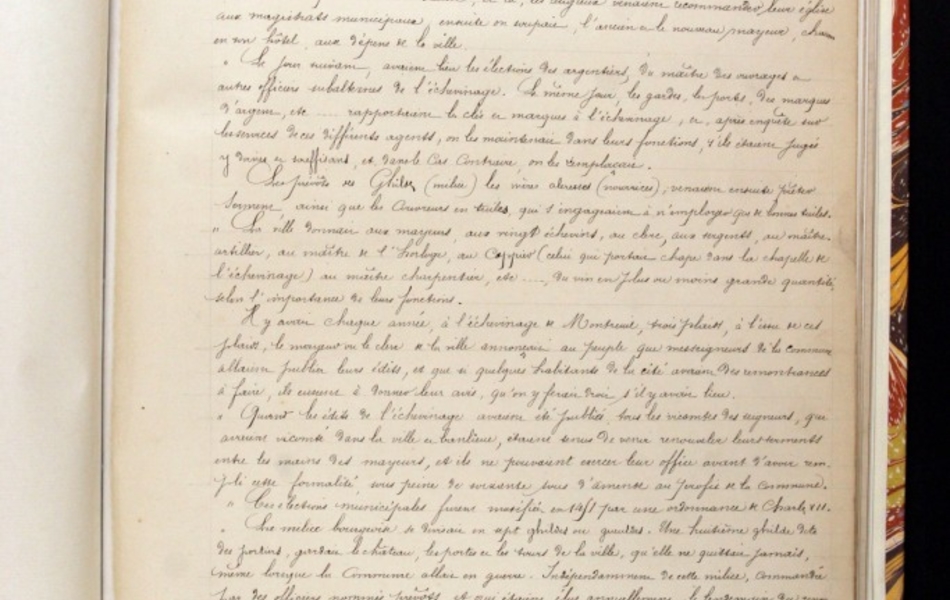 et, là, les religieux venaient recommander leur église
aux magistrats municipaux, ensuite on soupait, l'ancien et le nouveau mayeur, chacun
en son hôtel, aux dépens de la ville.
" Le jour suivant, avaient lieu les élections des argentiers, du maître des ouvrages et
autres officiers subalternes de l'échevinage. Le même jour, les gardes, les ports, des marques
d'argent, etc .... rapportaient la clés et marques à l'échevinage, et, après enquête sur
les services de ces différents agents, on les maintenait dans leurs fonctions, s'ils étaient jugés
y duires et souffisant, et, dans le Cas Contraire, on les remplaçait.
Les prévôts des Ghildes (milice) les mères aleresses (nourrices), venaient ensuite prêter
Serment, ainsi que les Couvreurs en tuiles, qui s'engageaient à n'employer que de bonnes tuiles.
" La ville donnait aux mayeurs, aux vingt échevins, au clerc, aux sergents, au maître-
artillier, au maître de l'horloge, au Coppier (celui qui portait chape dans la chapelle de
l'échevinage) au maître charpentier, etc ...., du vin en plus ou moins grande quantité,
selon l'importance de leurs fonctions.
Il y avait chaque année, à l'échevinage de Montreuil, trois plaids, à l'issue de ces
plaids, le mayeur ou le clerc de la ville annonçait au peuple que messeigneurs de la commune
allaient publier leurs édits, et que si quelques habitants de la cité avaient des remontrances
à faire, ils eussent à donner leur avis, qu'on y ferait droit, s'il y avait lieu.
" Quand les édits de l'échevinage avaient été publiés, tous les vicomtes des seigneurs, que
avaient vicomté dans la ville et banlieue, étaient tenus de venir renouveler leurs serments
entre les mains des mayeurs, et ils ne pouvaient exercer leur office avant d'avoir rem-
pli cette formalité, sous peine de soixante sous d'amende au profit de la Commune.
" Ces élections municipales furent modifiées en 1451 par une ordonnance de Charles VII.
" La milice bourgeoise se divisait en sept ghildes ou gueudes. Une huitième ghilde dite
des portiers, gardait le château, les portes et les tours de la ville, qu'elle ne quittait jamais,
même lorsque la Commune allait en guerre. Indépendamment de cette milice, commandée
par des officiers nommés prévôts, et qui étaient élus annuellement, le lendemain du